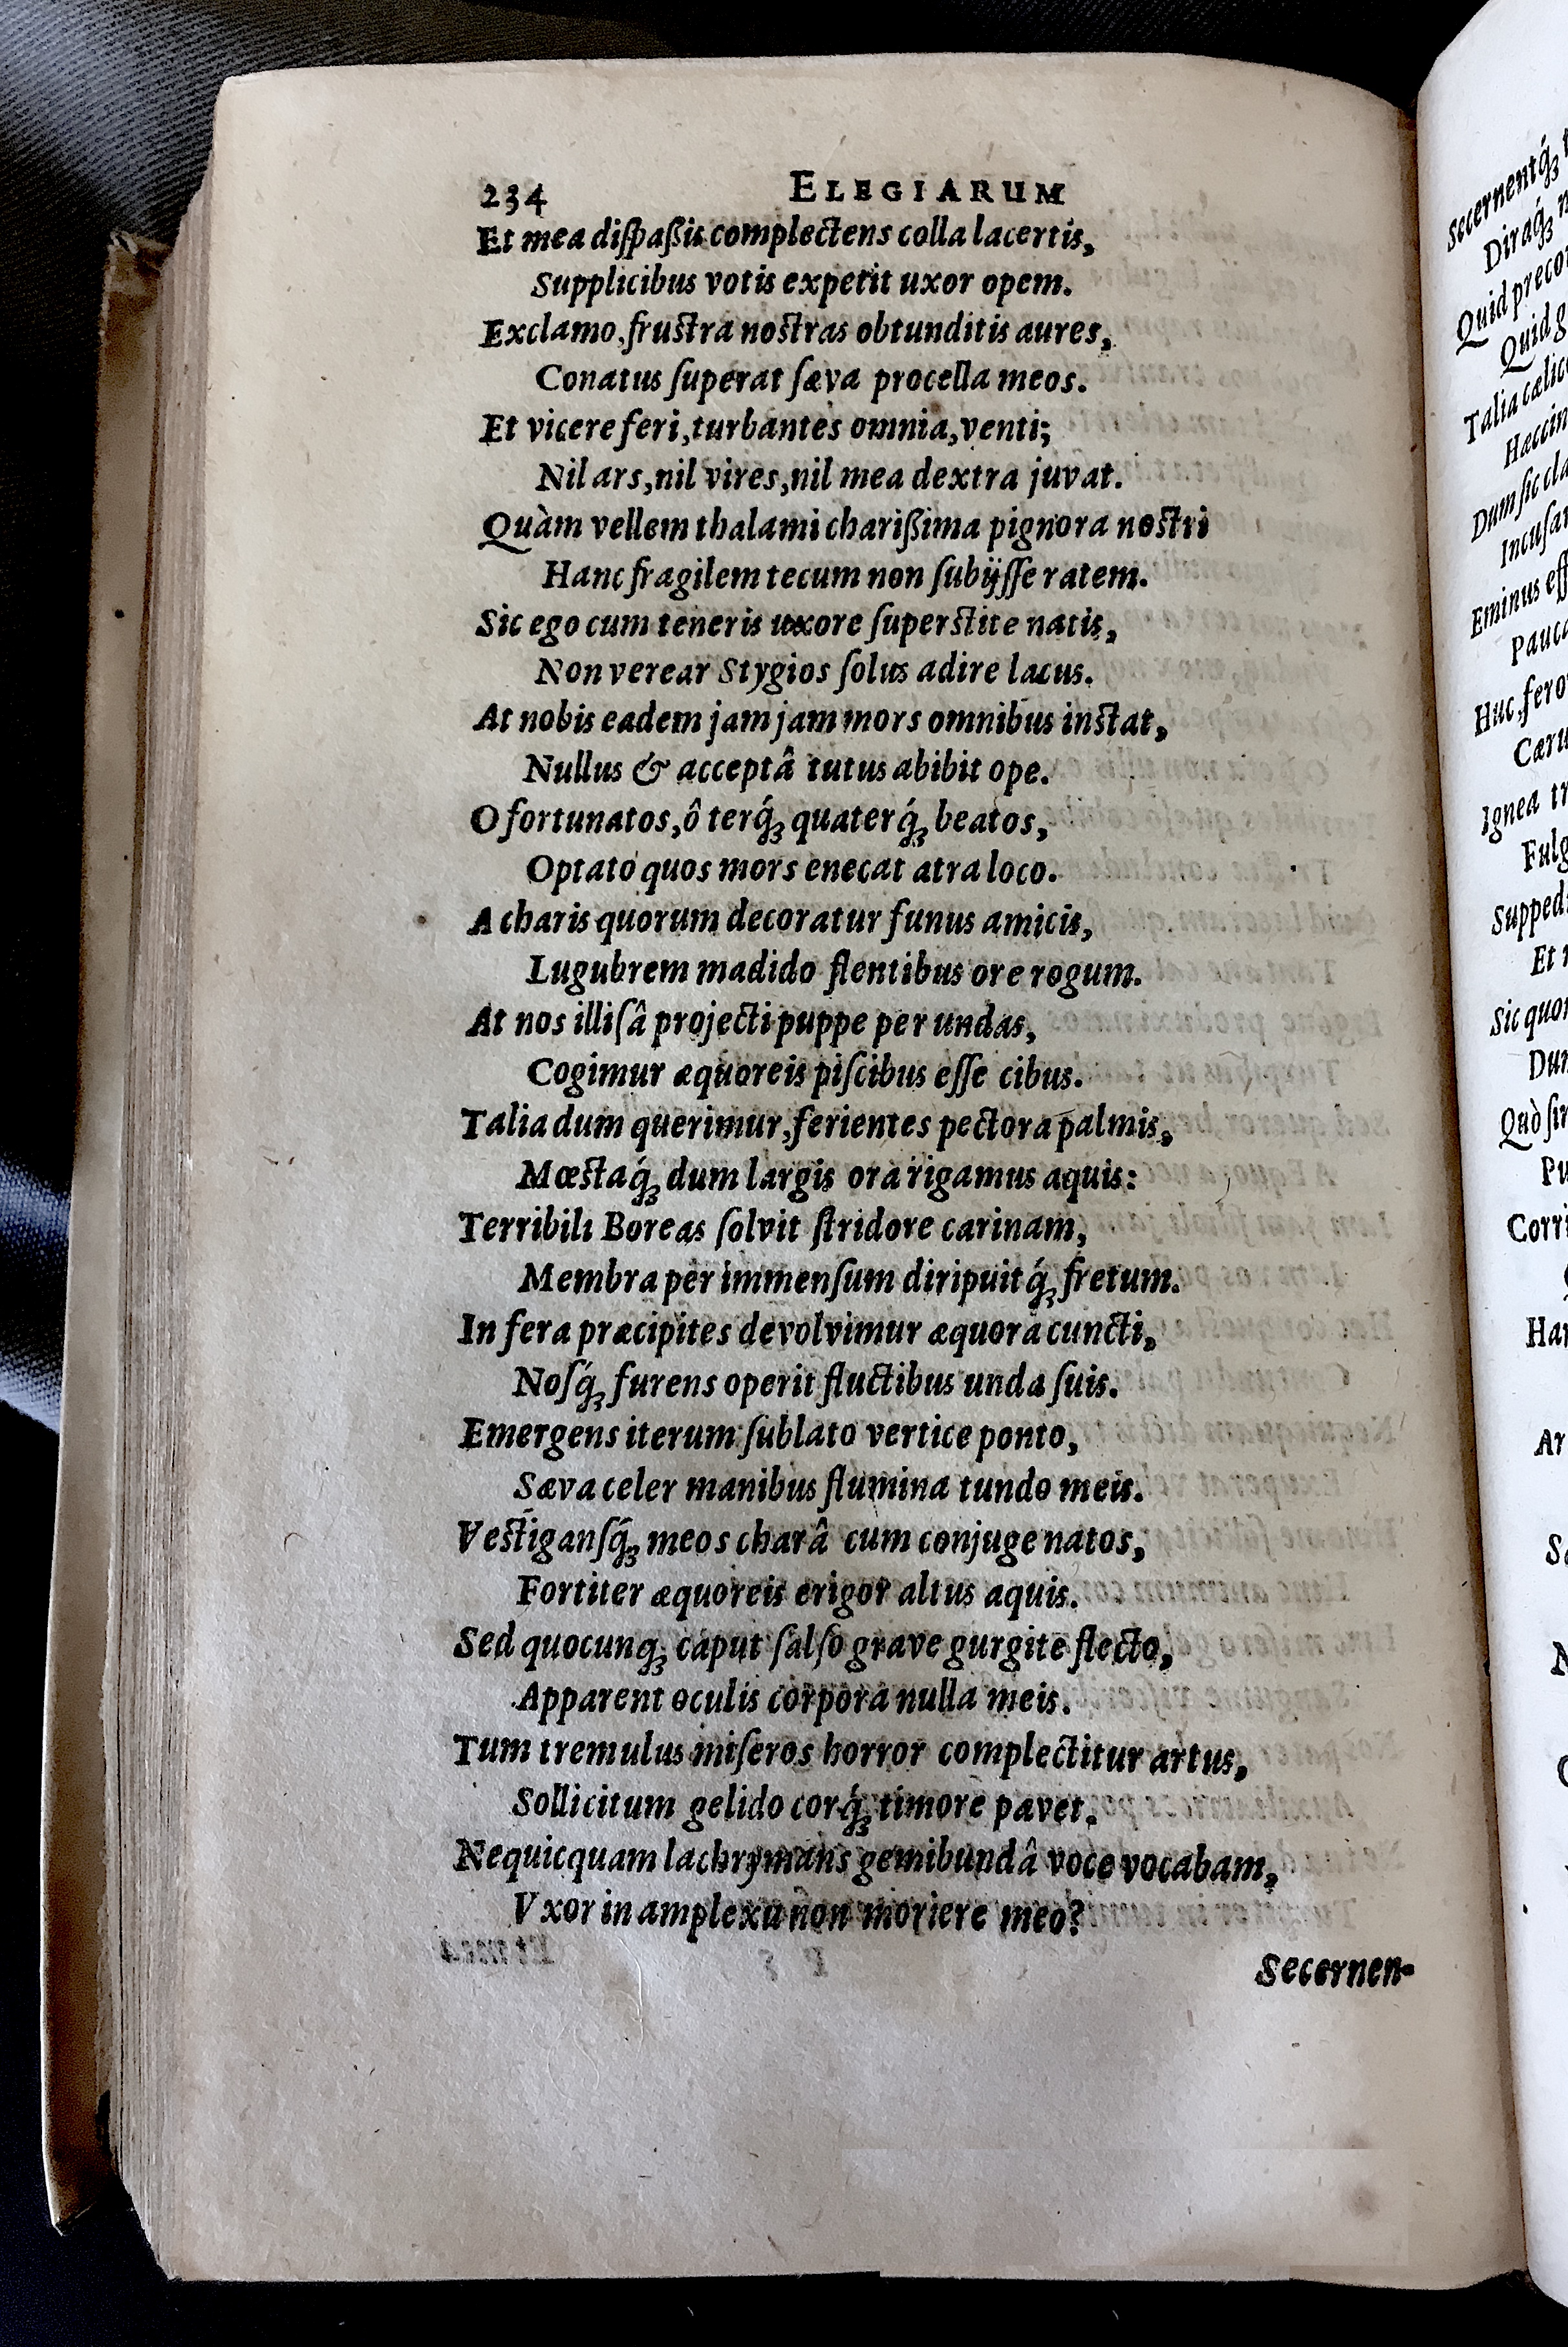 234 ELEGIARUM
Et mea diſpaßis complectens colla lacertis,
Supplicibus votis expetit uxor opem.
Exclamo, fruſtra noſtras obtunditis aures,
Conatus ſuperat ſæva procella meos.
Et vicere feri, turbantes omnia, venti;
Nil ars, nil vires, nil mea dextra juvat.
Quàm vellem thalami charißima pignora noſtri
Hanc fragilem tecum non ſubijſſe ratem.
Sic ego cum teneris uxore ſuperſtite natis,
Non verear Stygios ſolus adire lacus.
At nobis eadem jam jam mors omnibus inſtat,
Nullus & acceptâ tutus abibit ope.
O fortunatos, ô terq́ꝫ quaterq́ꝫ beatos,
Optato quos mors enecat atra loco.
A charis quorum decoratur funus amicis,
Lugubrem madido flentibus ore rogum.
At nos illiſâ projecti puppe per undas,
Cogimur æquoreis piſcibus eſſe cibus.
Talia dum querimur, ferientes pectora palmis,
Mœſtaq́ꝫ dum largis ora rigamus aquis:
Terribili Boreas ſolvit ſtridore carinam,
Membra per immenſum diripuitq́ꝫ fretum.
In fera præcipites devolvimur æquora cuncti,
Noſq́ꝫ furens operit fluctibus unda ſuis.
Emergens iterum ſublato vertice ponto,
Sæva celer manibus flumina tundo meis.
Veſtiganſq́ꝫ meos charâ cum conjuge natos,
Fortiter æquoreis erigor altus aquis.
Sed quocunqꝫ caput ſalſo grave gurgite flecto,
Apparent oculis corpora nulla meis.
Tum tremulus miſeros horror complectitur artus,
Sollicitum gelido corq́ꝫ timore pavet.
Nequicquam lachrymans gemibundâ voce vocabam,
Vxor in amplexu non moriere meo?
Secernen-
Secernentq́ꝫ
Diraq́ꝫ
Quid
Talia
Dum ſic
Eminus
Huc, fero
Ignea
Et
Sic